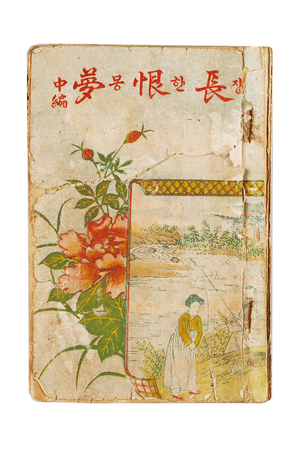 長한恨몽夢
中編